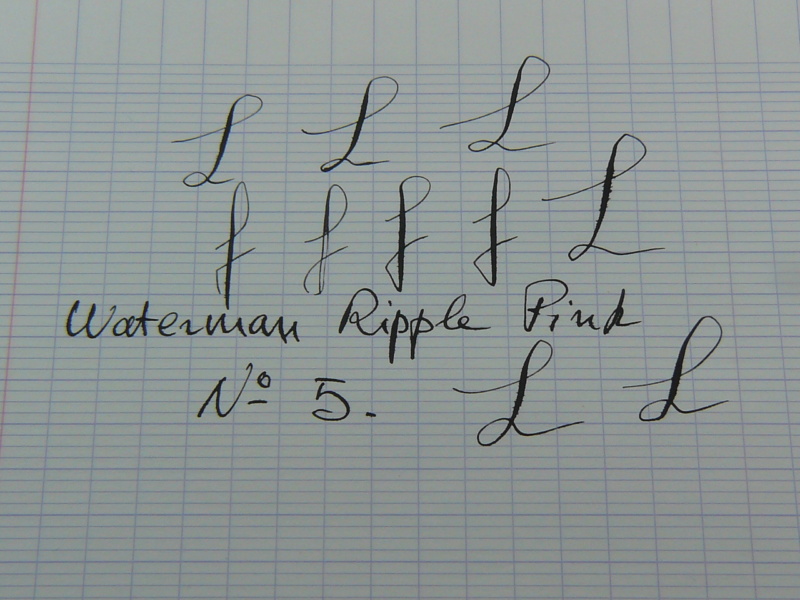 L L L
f f f f L
Waterman Ripple Pink
Nº 5. L L